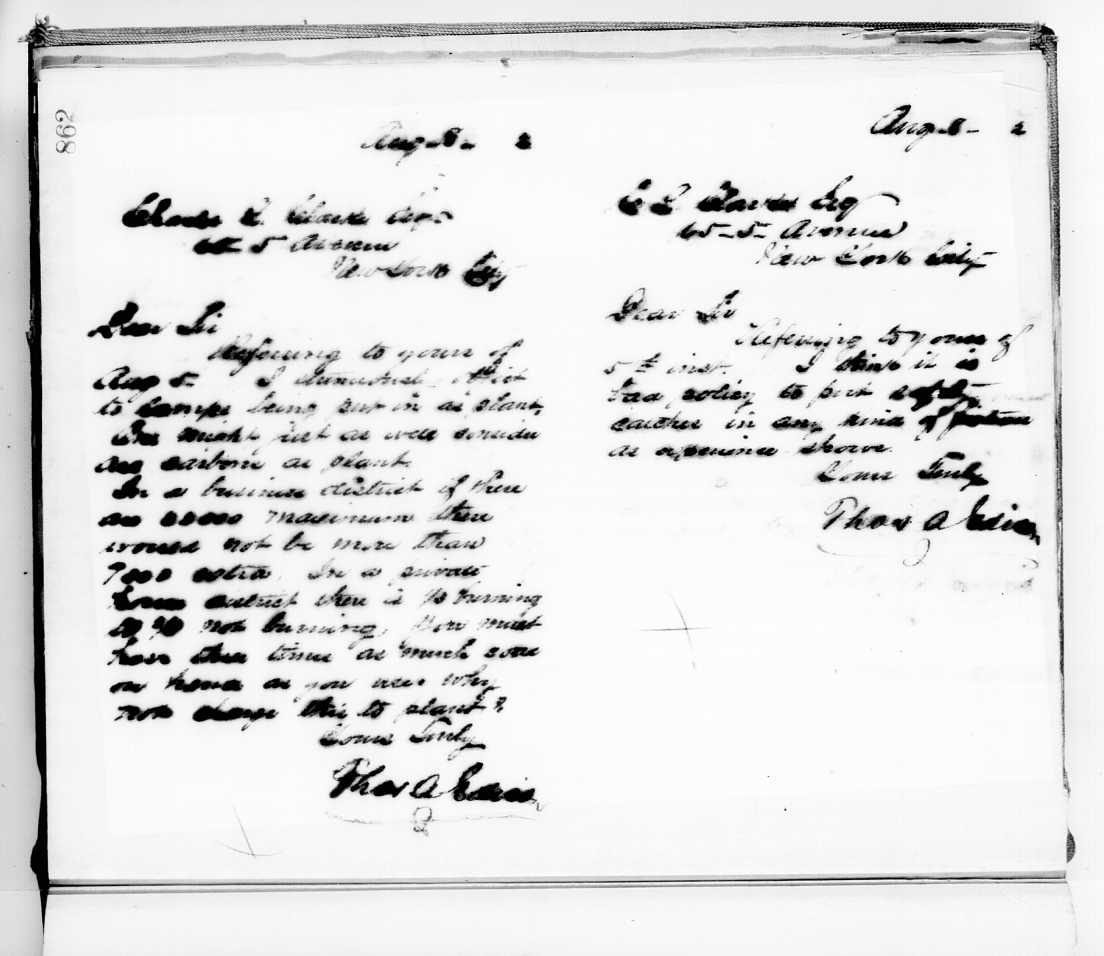 862
Aug. 8 - 2
Charles L. Clarke Esq
65 - 5 Avenue
New York City
Dear Sir
Referring to yours of
Aug 5. I object
to lamps being put in as plant,
One might just as well consider
arc carbons as plant.
In a business district if there
are 00000 maximum there
would not be more than
7000 extra. In a private
house district there is 1/10 burning
to 9/10 not burning, You must
have three times as much coal
on hand as you use why
not charge this to plant?
Yours Truly
Thos A Edison
Aug. 8 - 2
C L Clarke Esq
65 - 5 - Avenue
New York City
Dear Sir
Referring to yours of
5th inst. I think it is
bad policy to put safety
catches in any kind of fixture
as experience shows.
Yours Truly
Thos A Edison